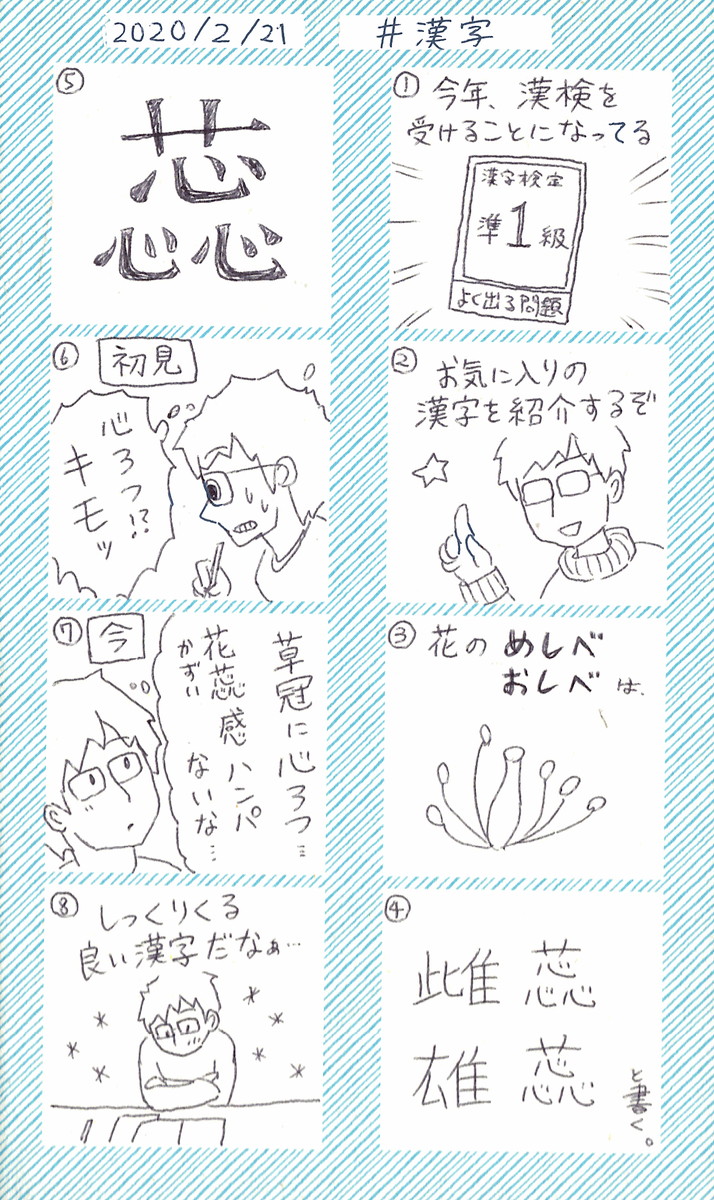 2020/2/21 #漢字
①
今年、漢検を
受けることになってる
漢字検定
準1級
よく出る問題
②
お気に入りの
漢字を紹介するぞ
③
花のめしべ
おしべは、
④
雌蕊
雄蕊
と書く。
⑤
蕊
⑥
初見
心3つ!?
キモッ
⑦
今
草冠に心3つ…
花蕊感ハンパ
かずい
ないな…
⑧
しっくりくる
良い漢字だなぁ…